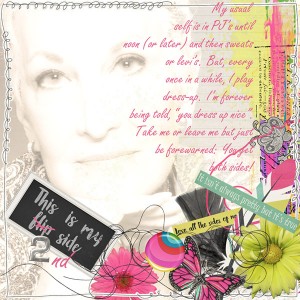 My usual
self is in PJ's until
noon (or later) and then sweats
or levi's. But, every
once in a while, I play
dress-up. I'm forever
being told, "you dress up nice".
Take me or leave me but just
be forewarned: You get
both sides!
It isn't always pretty, but it's true
Love all the sides of me
This is my
flip side
2nd